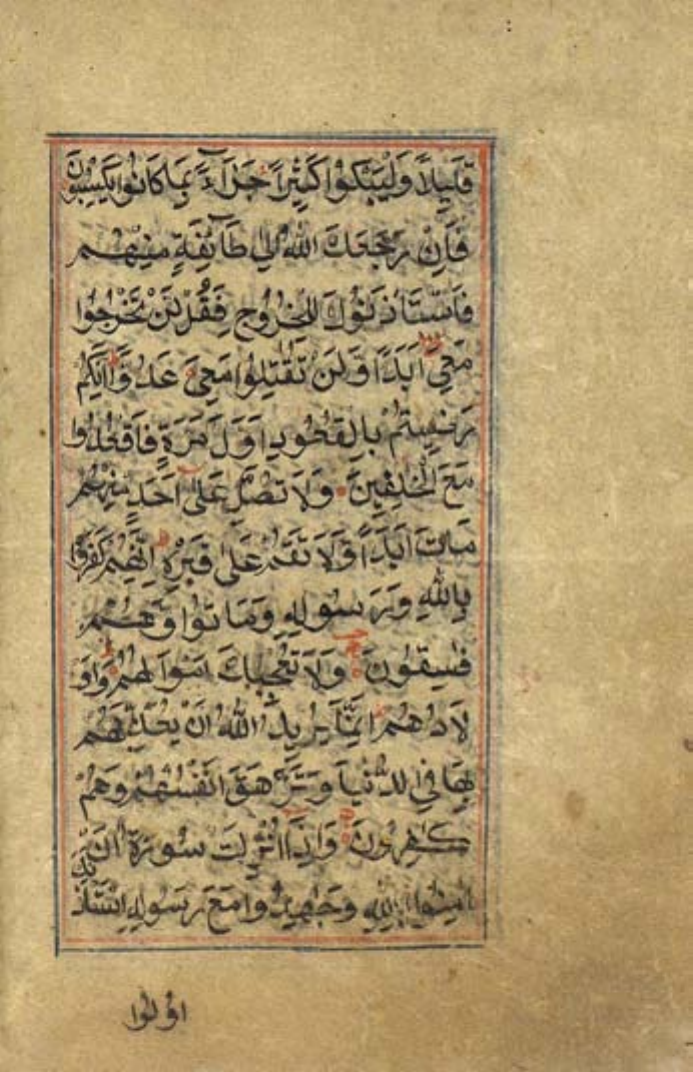 قَلِيلًا وَلْيَبْكُوا كَثِيرًا جَزَآءً بِمَا كَانُوا يَكْسِبُونَ
فَاِنْ رَجَعَكَ اللهُ اِلٰى طَآئِفَةٍ مِنْهُمْ
فَاسْتَأْذَنُوكَ لِلْخُرُوجِ فَقُلْ لَنْ تَخْرُجُوا
مَعِيَ اَبَدًا وَلَنْ تُقٰتِلُوا مَعِيَ عَدُوًّا اِنَّكُمْ
رَضِيتُمْ بِالْقُعُودِ اَوَّلَ مَرَّةٍ فَاقْعُدُوا
مَعَ الْخٰلِفِينَ وَلَا تُصَلِّ عَلٰى اَحَدٍ مِنْهُمْ
مَاتَ اَبَدًا وَلَا تَقُمْ عَلٰى قَبْرِهِ اِنَّهُمْ كَفَرُوا
بِاللهِ وَرَسُولِهِ وَمَاتُوا وَهُمْ
فٰسِقُونَ وَلَا تُعْجِبْكَ اَمْوَالُهُمْ وَاَوْ
لَادُهُمْ اِنَّمَا يُرِيدُ اللهُ اَنْ يُعَذِّبَهُمْ
بِهَا فِي الدُّنْيَا وَتَزْهَقَ اَنْفُسُهُمْ وَهُمْ
كٰفِرُونَ وَاِذَآ اُنْزِلَتْ سُورَةٌ اَنْ
اٰمِنُوا بِاللهِ وَجٰهِدُوا مَعَ رَسُولِهِ اسْتَأْذَنَكَ
اُولُوا